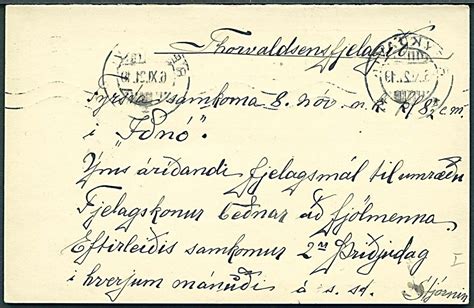 Thorvaldsensfjelagið
Fyrsta samkoma 8. nóv. n. k. kl 8½ e.m.
i "Iðnó".
Ýms áriðandi fjelagsmál til umræðu
Fjelagskonur beðnar að fjölmenna.
Eftirleiðis samkomur 2an þriðjudag
i hverjum mánuði á s. st. Stjórnin